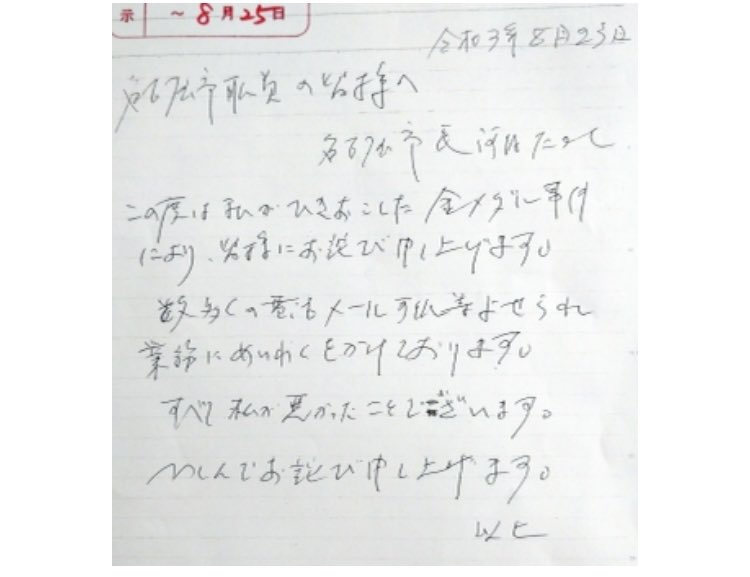 示 ~8月25日
令和3年8月23日
名古屋市職員の皆様へ
名古屋市長 河村たかし
この度は私がひきおこした金メダル事件
により、皆様にお詫び申し上げます。
数多くの電話メール手紙等よせられ
業務にめいわくをかけております。
すべて私が悪かったことでございます。
つつしんでお詫び申し上げます。
以上